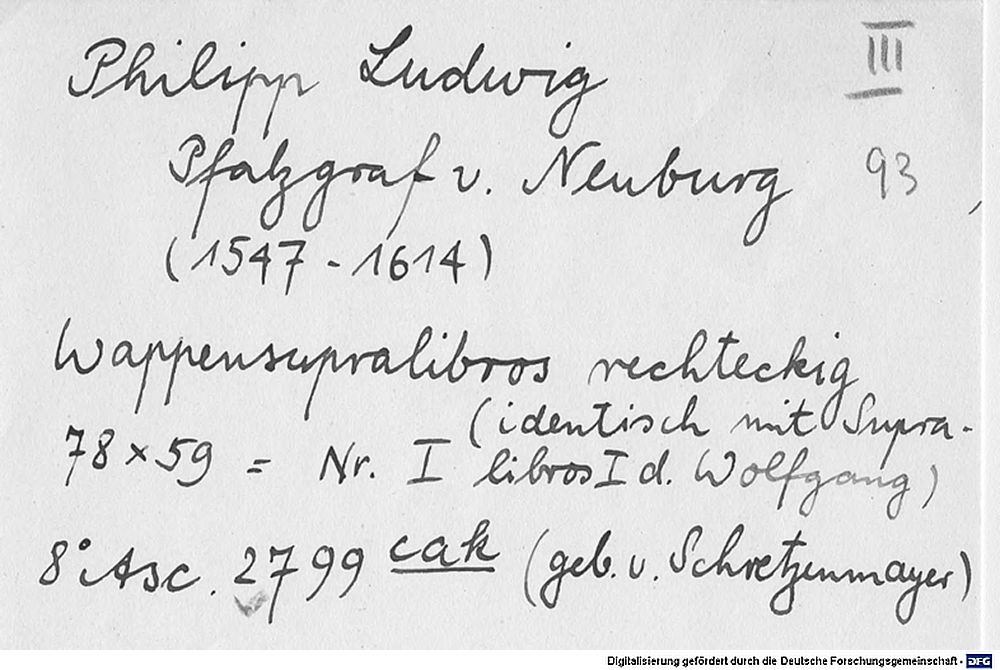 Philipp Ludwig III
Pfalzgraf v. Neuburg 93
(1547 - 1614)
Wappensupralibros rechteckig
78 x 59 = Nr. I (identisch mit Supra-
libros I d. Wolfgang)
8° Asc. 2799 cak (geb. v. Schretzenmayer)
Digitalisierung gefördert durch die Deutsche Forschungsgemeinschaft - DFG